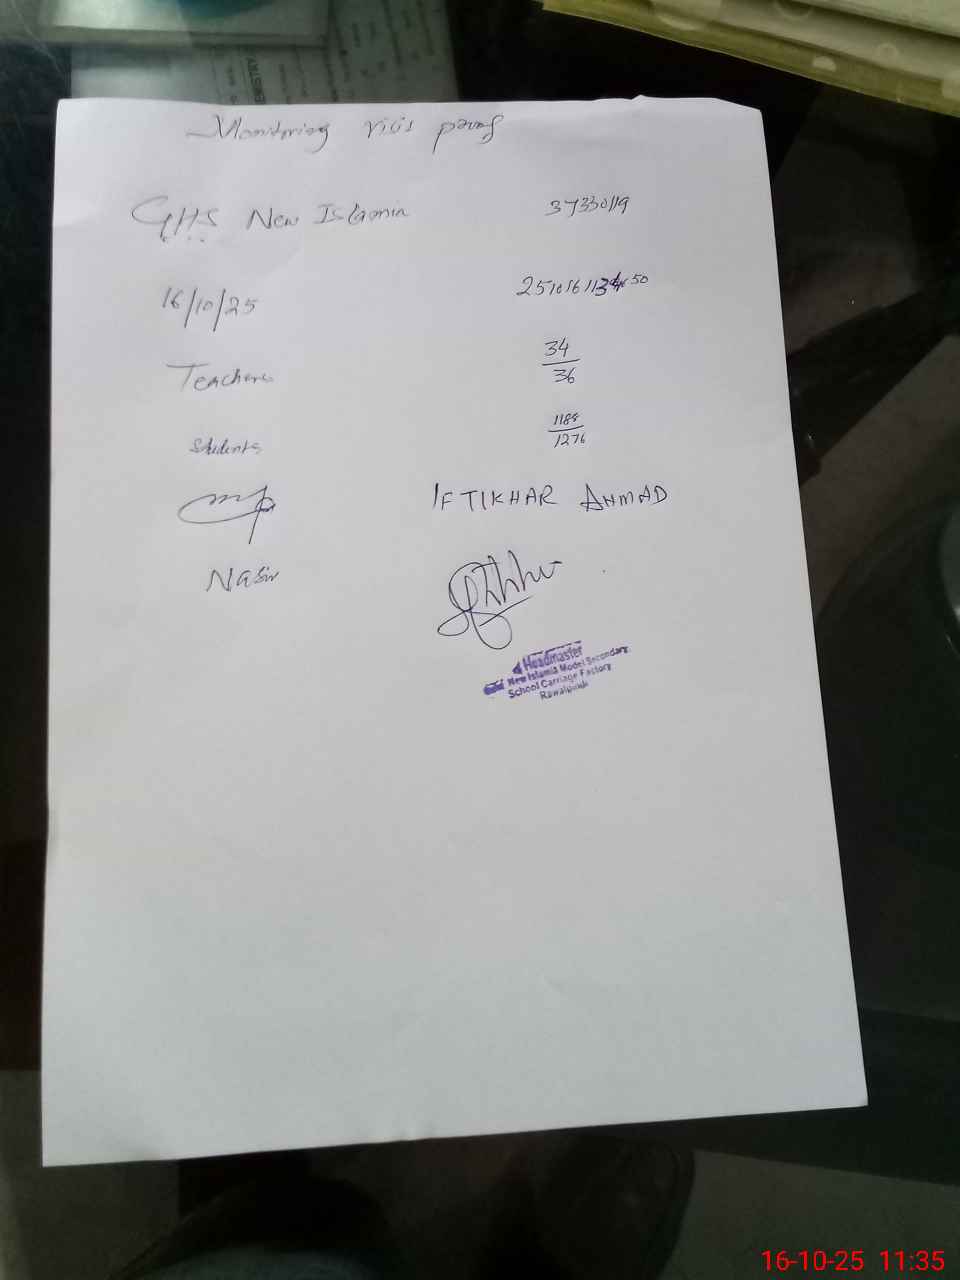 Monitoring visit proof
GHS New Islamia 37330119
16/10/25
Teachers 34/36
Students 1188/1276
IFTIKHAR AHMAD
Nasir
Headmaster
New Islamia Model Secondary
School Carriage Factory
Rawalpindi
16-10-25 11:35